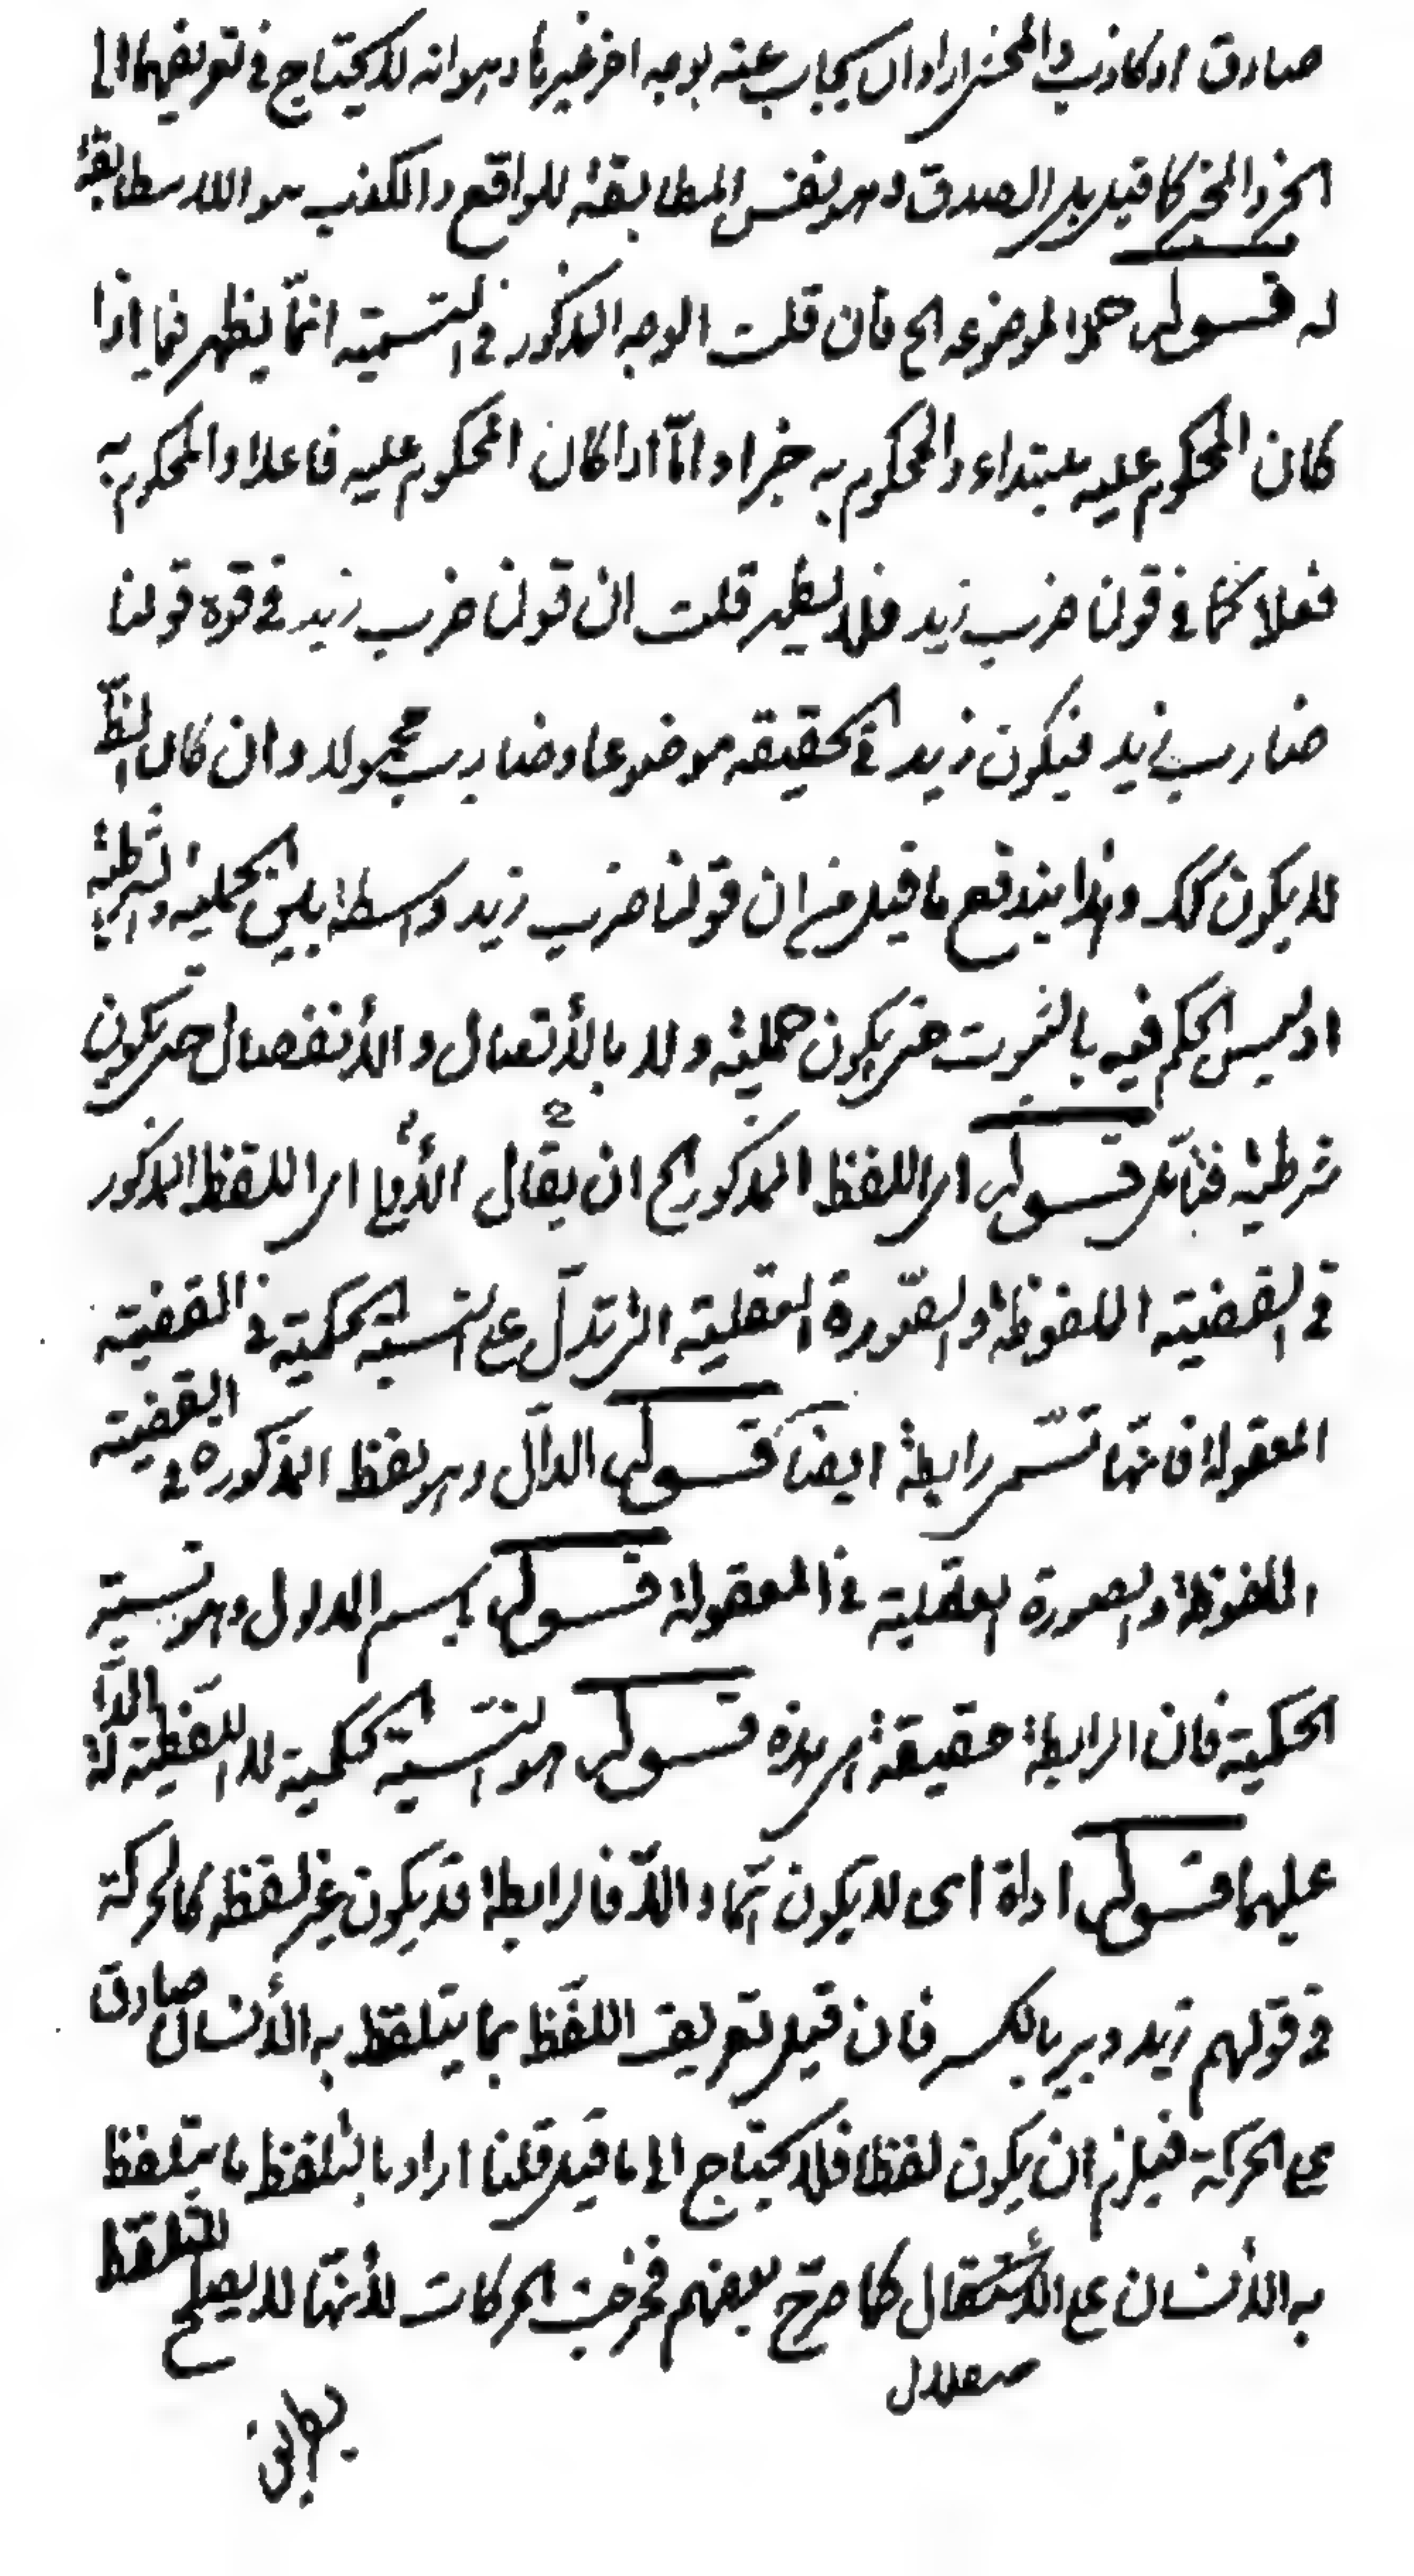 صادق او كاذب والمخبر اراد ان يجاب عنه بوجه اخر غير ما وهو انه لا يحتاج في تعريفهما الى
الخبر والمخبر كما قيل بل الصدق وهو نفس المطابقة للواقع والكذب هو اللامطابقة
له قوله هما الموضوع الخ فان قلت الوجه المذكور في التسمية انّما يظهر فيما اذا
كان المحكوم عليه مبتداء والمحكوم به خبرا وامّا اذا كان المحكوم عليه فاعلا والمحكوم به
فعلا كما في قولنا ضرب زيد فلا يظهر قلت ان قولنا ضرب زيد في قوة قولنا
ضارب زيد فيكون زيد في الحقيقة موضوعا وضارب محمولا وان كان لفظا
لا يكون كك وبهذا يندفع ما قيل من ان قولنا ضرب زيد واسطة بين الحملية والشرطية
اذ ليس الحكم فيه بالثبوت حتى يكون حملية ولا بالأتصال والأنفصال حتى يكون
شرطية فتأمّل قوله اى اللفظ المذكور الخ ان يقال الأولى اى اللفظ المذكور
في القضية الملفوظة والصّورة العقلية التى تدلّ على النسبة الحكمية في القضية
المعقولة فانّها تسمّى رابطة ايضا قوله الدالّ وهو لفظ المذكورة في القضية
الملفوظة والصورة العقلية في المعقولة قوله باسم المدلول وهو نسبة
الحكمية فان الرابطة حقيقة هى هذه قوله هو النسبة الحكمية لا اللّفظية الدّالة
عليها قوله اداة اى لا يكون تماما والّا فالرابطة قد يكون غير لفظ كالحركة
في قولهم زيد دبير بالكسر فان قيل تعريف اللفظ بما يتلفظ به الأنسان صادق
على الحركة فيلزم ان يكون لفظا فلا يحتاج الى ما قيل قلنا اراد بالتلفظ ما يتلفظ
به الأنسان على الأستقلال كما صرّح بعضهم فخرجت الحركات لأنّها لا يصلح للتلفظ